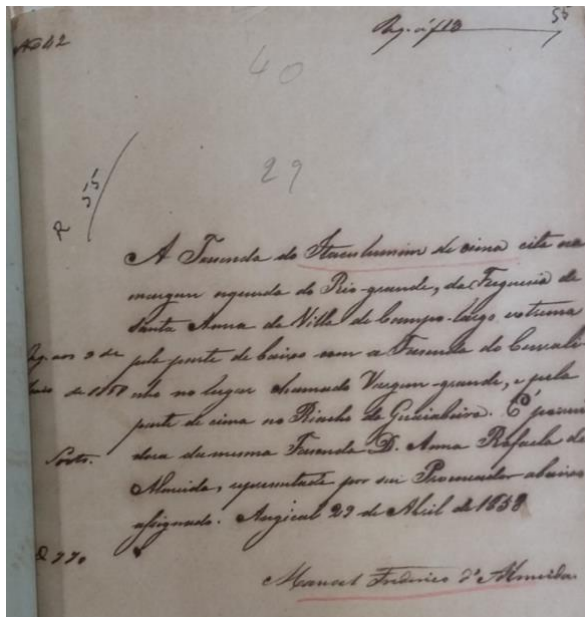 Nº 42
55
40
29
A Fasenda do Itacolumim de cima cita na
margem esquerda do Rio-grande, da Freguesia de
Santa Anna da Villa de Campo-largo extrema
pela parte de baixo com a Fasenda do Currali
nho no lugar chamado Vargem-grande, e pela
parte de cima no Riacho da É possui
dora da mesma Fasenda D. Anna Rafaela de
Almeida, representada por seu Procurador abaixo
assignado. Angical 29 de Abril de 1858
Manoel Frederico d'Almeida